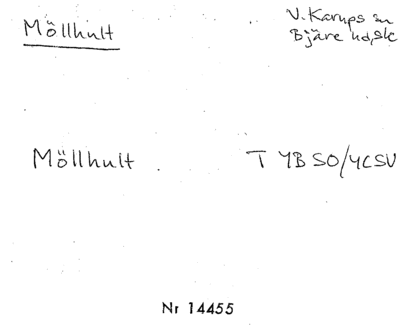 Möllhult
V. Karups sn
Bjäre hd, Sk
Möllhult
T 4B SO/4C SV
Nr 14455